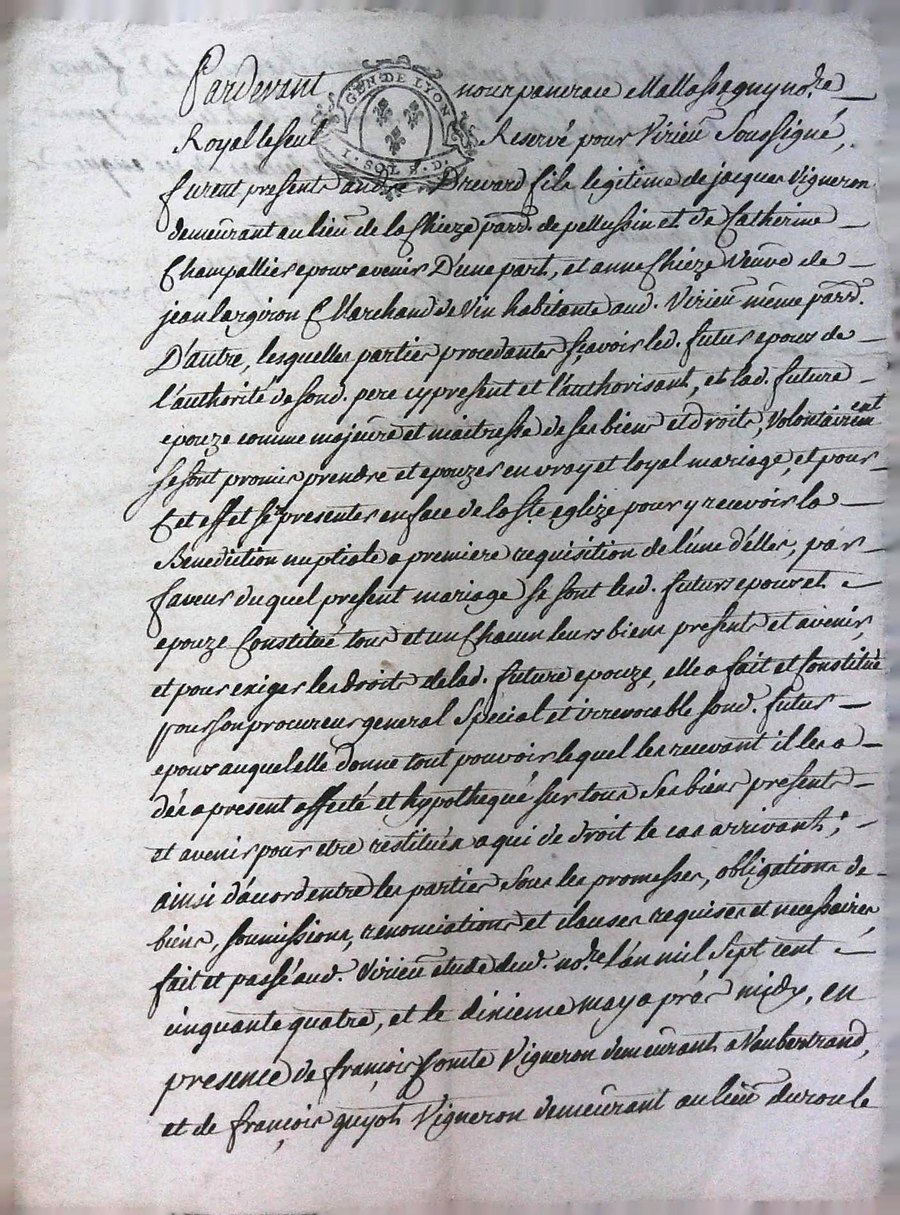 Pardevant nous pancrace Mallassagny no.re
Royal le seul Reservé pour Virieu Soussigné,
GEN. DE LYON
1. SOL 8. D.
furent presents andré Drevard fils legitime de jacques Vigneron
demeurant au lieu de la Chieze parr. de pellussin et de Catherine
Champallier epoux avenir D'une part, et anne Chieze Veuve de
jean largiron Marchand de Vin habitante aud. Virieu même parr.
D'autre, lesquelles parties procedantes scavoir led. futur epoux de
l'authorité de sond. pere cy present et l'authorisant, et lad. future
epouze comme majeure et maitresse de ses biens et droits, Volontairement
se sont promis prendre et epouzer en vray et loyal mariage, et pour
Cet effet se presenter en face de la s.te eglize pour y recevoir la
Benediction nuptiale a premiere requisition de l'une d'elles, par
faveur du quel present mariage se sont lesd. futurs epoux et
epouze Constitué tous et un Chacun leurs biens presents et avenir,
et pour exiger les droits de lad. future epouze, elle a fait et Constitué
pour son procureur general Special et irrevocable sond. futur
epoux auquel elle donne tout pouvoir lequel les recevant il les a
dés a present affecté et hypothequé sur tous ses biens presents
et avenir pour etre restitués a qui de droit le cas arrivant;
ainsi d'acord entre les parties sous les promesses, obligations de
biens, soumissions, renonciations et clauses requises et necessaires
fait et passé aud. Virieu etude dud. no.re l'an mil sept cent
cinquante quatre, et le dixieme may apràs midy, en
presence de françois Comte Vigneron demeurant a Vaubertrand,
et de françois guyot Vigneron demeurant au lieu du roule